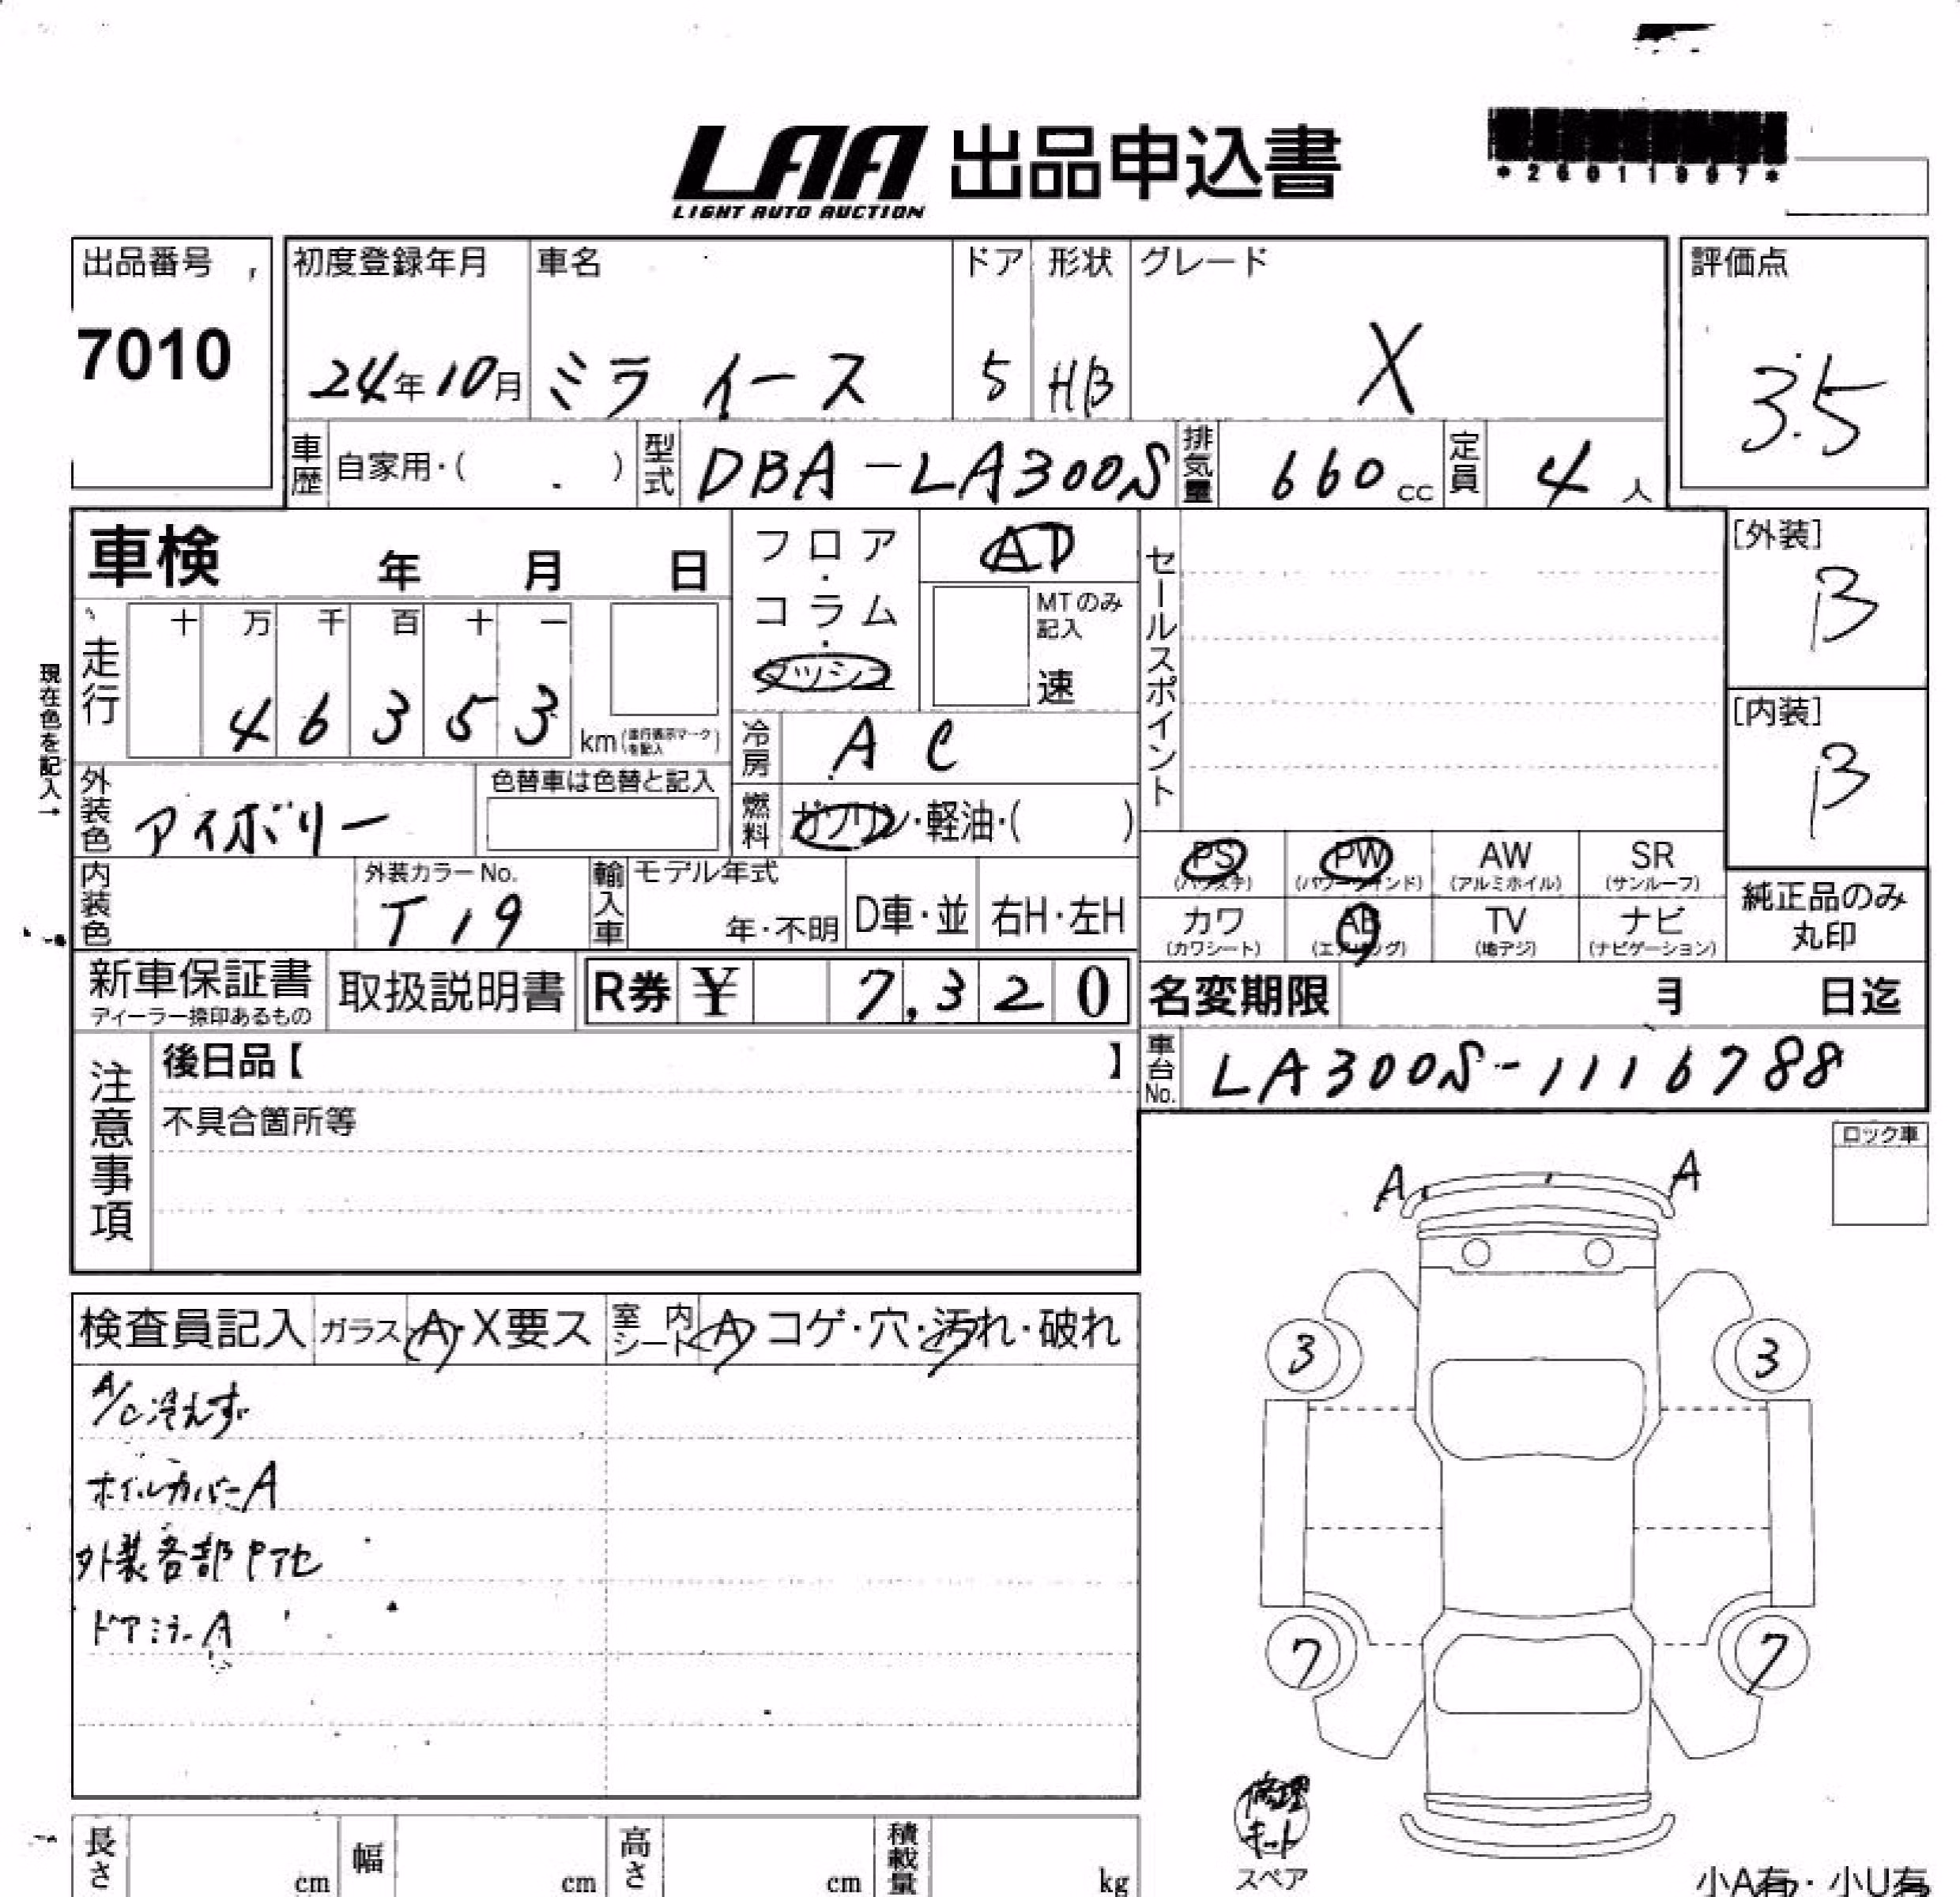 LAA 出品申込書
LIGHT AUTO AUCTION
出品番号
7010
初度登録年月
24年10月
車名
ミラ イース
ドア
5
形状
HB
グレード
X
評価点
3.5
車歴 自家用・( )
型式 DBA-LA300S
排気量 660 cc
定員 4 人
車検 年 月 日
フロア・コラム・ダッシュ
AT
MTのみ記入
速
セールスポイント
[外装]
B
[内装]
B
現在色を記入→
走行
十 万 千 百 十 一
4 6 3 5 3 km
冷房 AC
外装色 アイボリー
色替車は色替と記入
燃料 ガソリン・軽油・( )
内装色
外装カラーNo.
T19
輸入車
モデル年式
年・不明
D車・並
右H・左H
PS
PW
(パワーウインド)
AW
(アルミホイル)
SR
(サンルーフ)
カワ
(カワシート)
AB
(エアバッグ)
TV
(地デジ)
ナビ
(ナビゲーション)
純正品のみ
丸印
新車保証書
取扱説明書
R券 ¥ 7,320
名変期限 月 日迄
車台No. LA300S-1116788
注意事項
後日品【 】
不具合箇所等
ロック車
A A
3 3
7 7
検査員記入 ガラス A・X要ス 室内シート A コゲ・穴・汚れ・破れ
A/C冷えず
ホイルカバーA
外装各部Pアセ
ドアミラーA
修理キット
スペア
長さ cm
幅 cm
高さ cm
積載量 kg
小A有・小U有